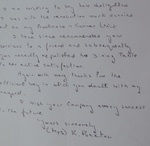 I am writing to say how delighted
I was with the renovation work carried
out on my
I have since recommended you
to a friend and subsequently
you recently repolished his dining table
to his entire satisfaction.
Again with my thanks for the
efficient way in which you dealt with my
I wish your Company every success
in the future.
Yours sincerely
(Mrs) K.